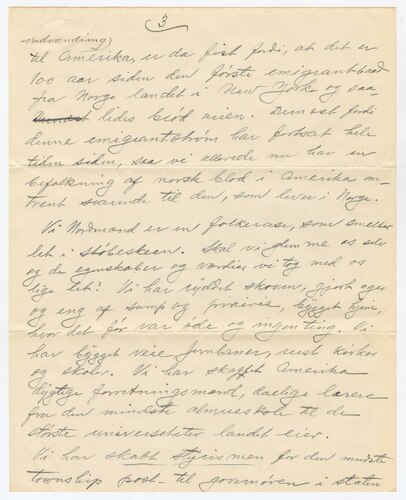 3
indvandring,
til Amerika, er da fist fordi, at det er
100 aar siden den første emigrantbaad
fra Norge landet i New York og saa
ledes brød veien. Dernest fordi
denne emigrantstrøm har fortsat hele
tiden siden, saa vi allerede nu har en
befolkning af norsk blod i Amerika om-
trent svarende til den, som lever i Norge.
Vi Nordmænd er en folkerase, som smelter
let i støbeskeen. Skal vi glemme os selv
og de egnskaber og værdier vi tog med os
lige let? Vi har ryddet skoven, gjort ager
og eng af sump og prairie, bygget hjem,
hvor det før var øde og ingen ting. Vi
har bygget veie jernbaner, reist kirker
og skoler. Vi har skaffet Amerika
dygtige forretningsmænd, lærere
fra den mindste almueskole til de
største universiteter landet eier.
Vi har skabt styresmen for den mindste
township post- til governøren i staten